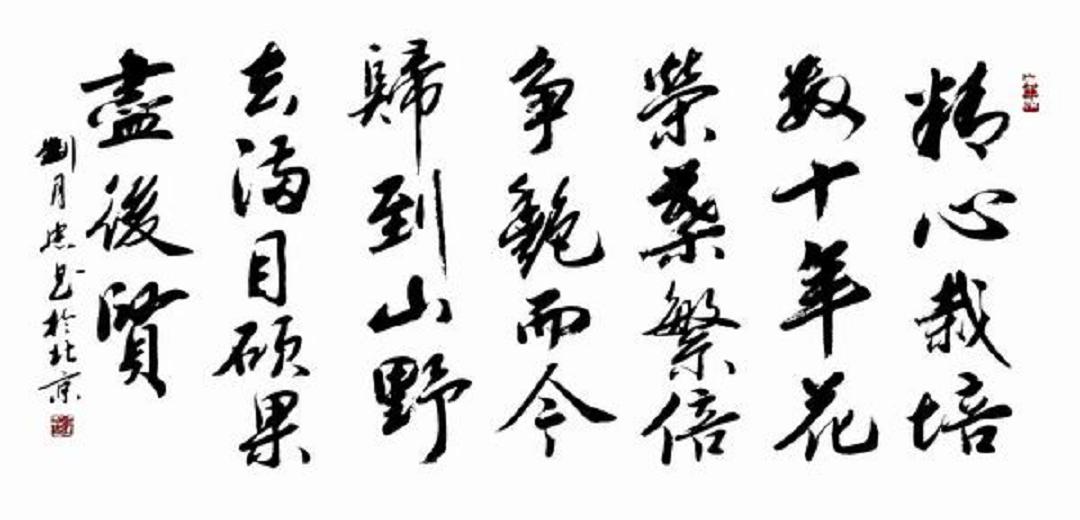 精心栽培
数十年花
榮葉繁倍
争艷而今
歸到山野
去满目碩果
盡後賢
劉月忠书於北京